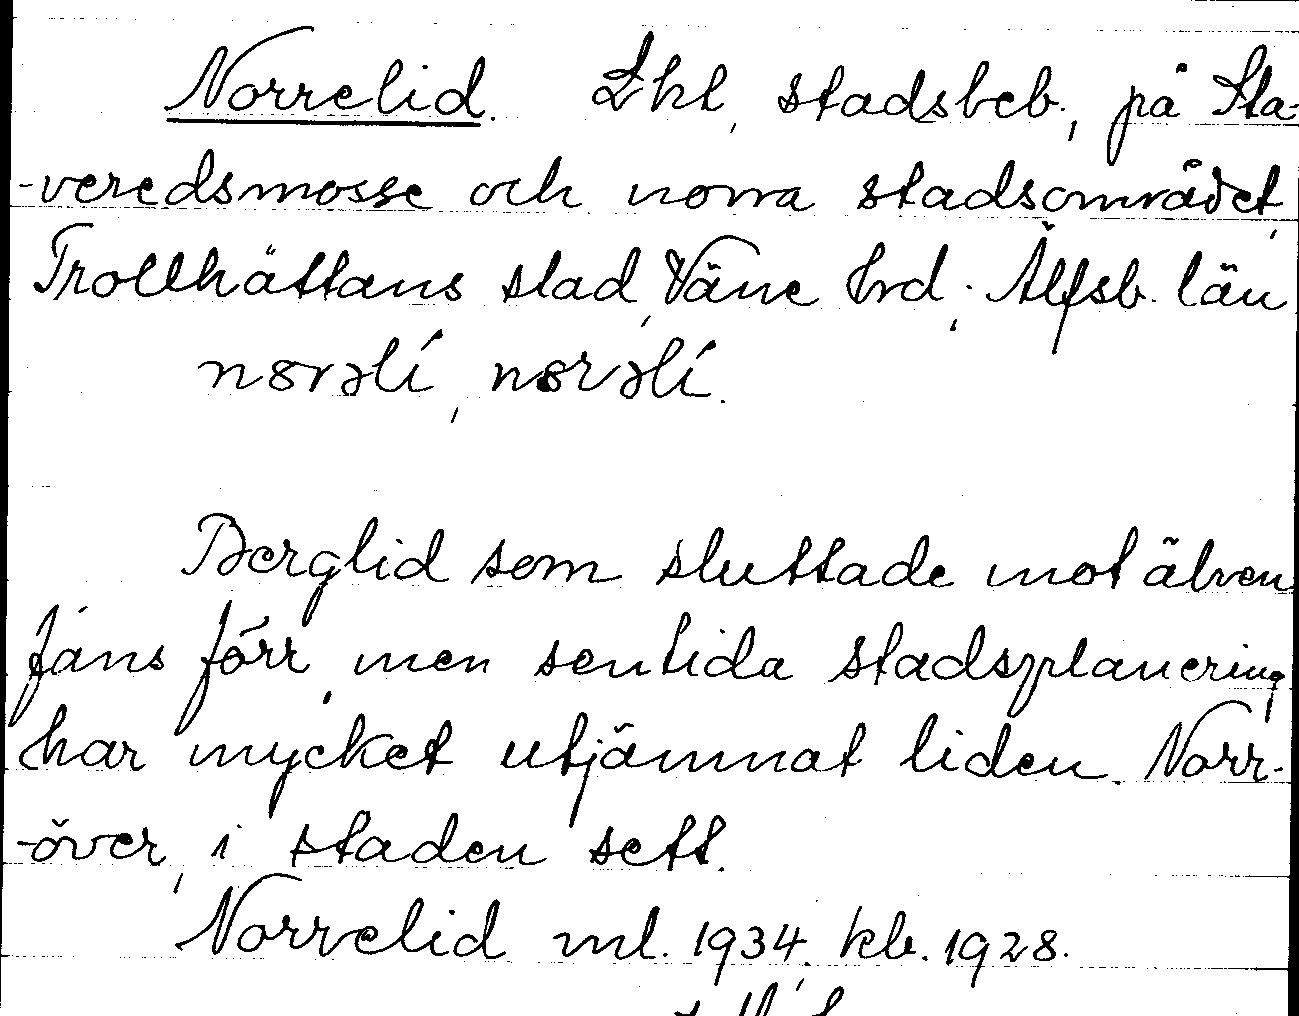 Norrelid. Lht, stadsbeb., på Sta-
-veredsmosse och norra stadsområdet,
Trollhättans stad, Väne hrd, Älfsb. län
nɞrəlí, nɞrəlí.
Berglid som sluttade mot älven
fans förr, men sentida stadsplanering
har mycket utjämnat liden. Norr-
-över, i staden sett.
Norrelid ml. 1934, kb. 1928.